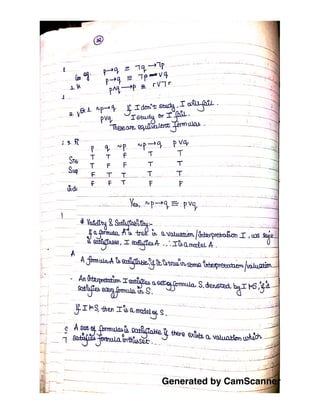 eg. p→q ≡ ¬q→¬p
p→q ≡ ¬p∨q
p∧q→p ≡ r∨¬r
~p→q If I don't study, I
p∨q I study or I fail.
These are equivalent formulas.
p q ~p ~p→q p∨q
T T F T T
T F F T T
F T T T T
F F T F F
Yes, ~p→q ≡ p∨q
# Validity & Satisfiability:-
If a formula A is true in a valuation/Interpretation I, we
is satisfies. I satisfies A ... I is a model A.
A formula A is satisfiable if it is true in some Interpretation/valuation
An interpretation I satisfies a set of formula S, denoted by I⊨S, if it
satisfies every formula in S.
If I⊨S, then I is a model of S.
A set of formulas is satisfiable if there exists a valuation which
satisfies formula in the set.
Generated by CamScanner